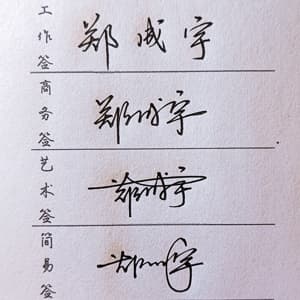 工作签 郑成宇
商务签 郑成宇
艺术签 郑成宇
简易签 郑成宇